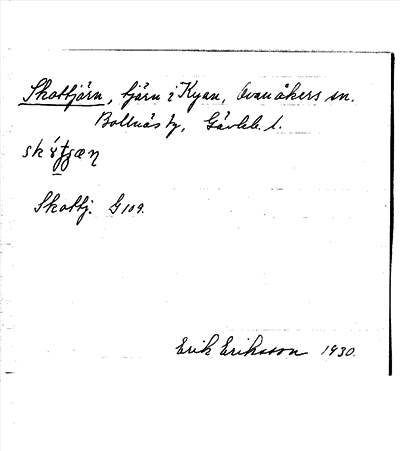 Skottjärn, tjärn i Kyan, Ovanåkers sn.
Bollnäs tg, Gävleb. l.
Skottj. G 109.
Erik Eriksson 1930.